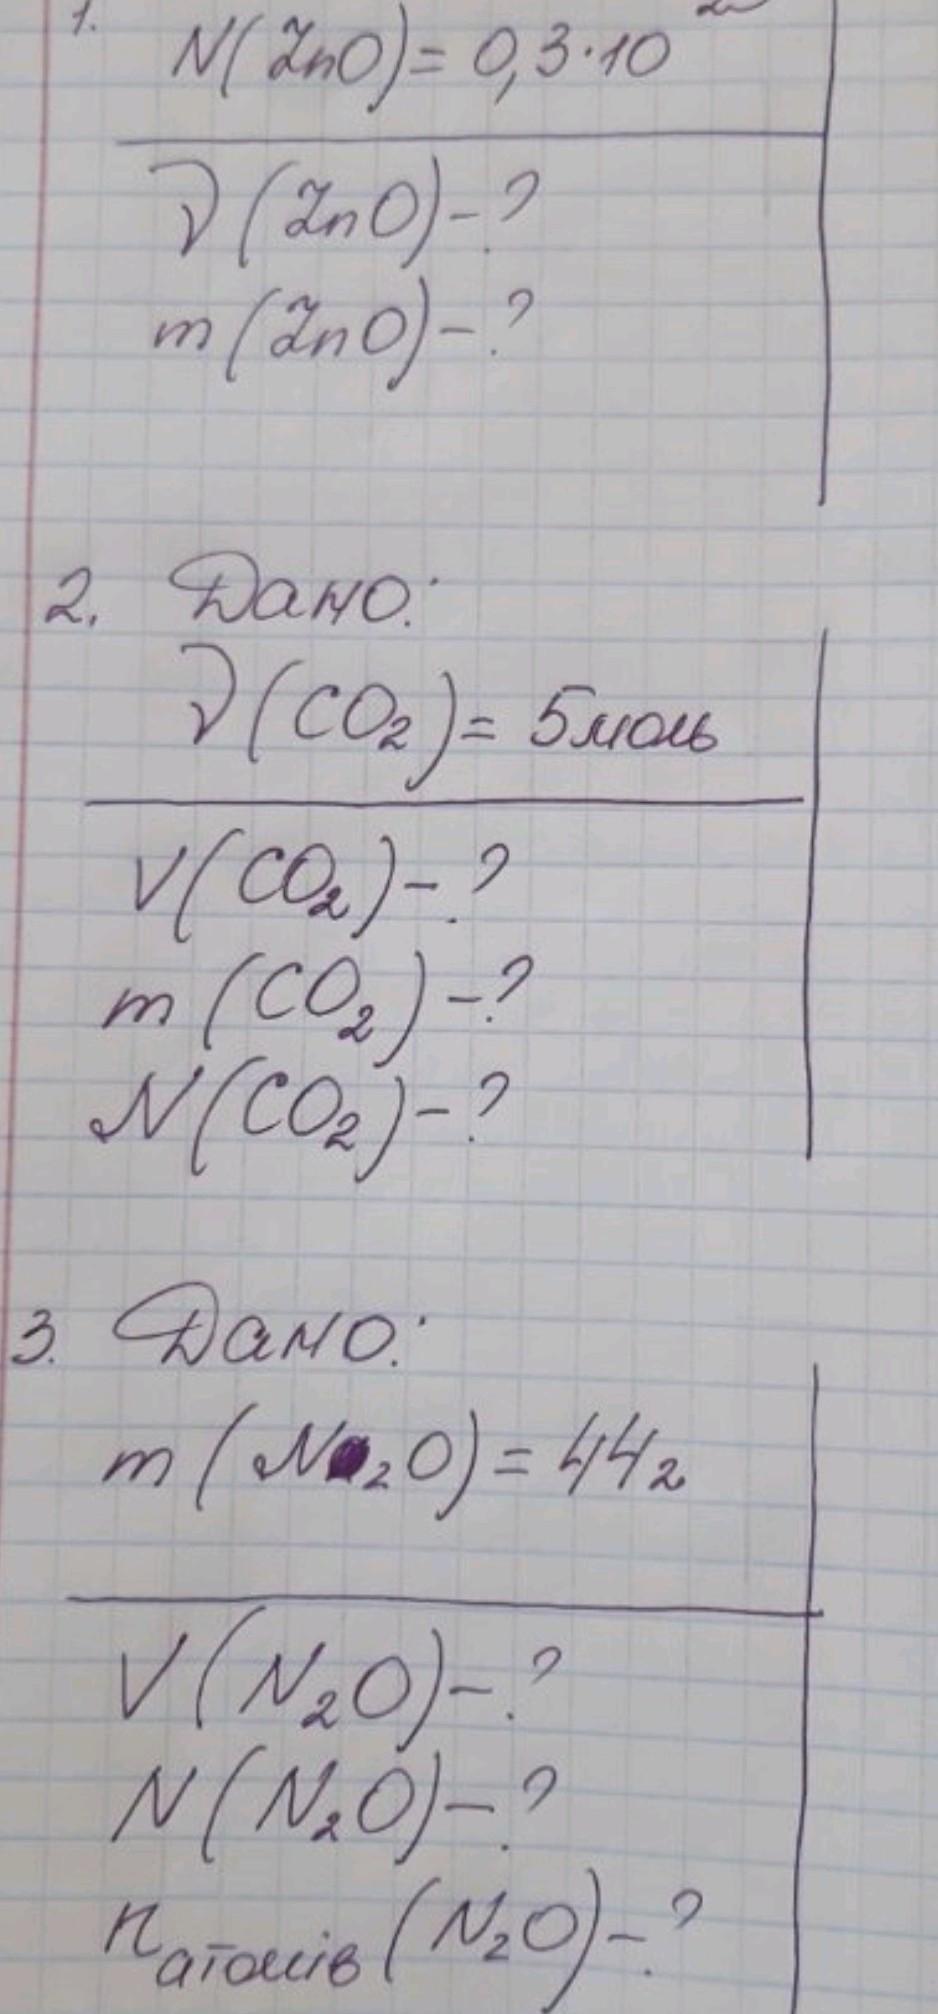 1.
N(ZnO)=0,3·10
ν(ZnO)-?
m(ZnO)-?
2. Дано:
ν(CO₂)= 5моль
V(CO₂)-?
m(CO₂)-?
N(CO₂)-?
3. Дано:
m(N₂O)=44г
V(N₂O)-?
N(N₂O)-?
nатомів(N₂O)-?